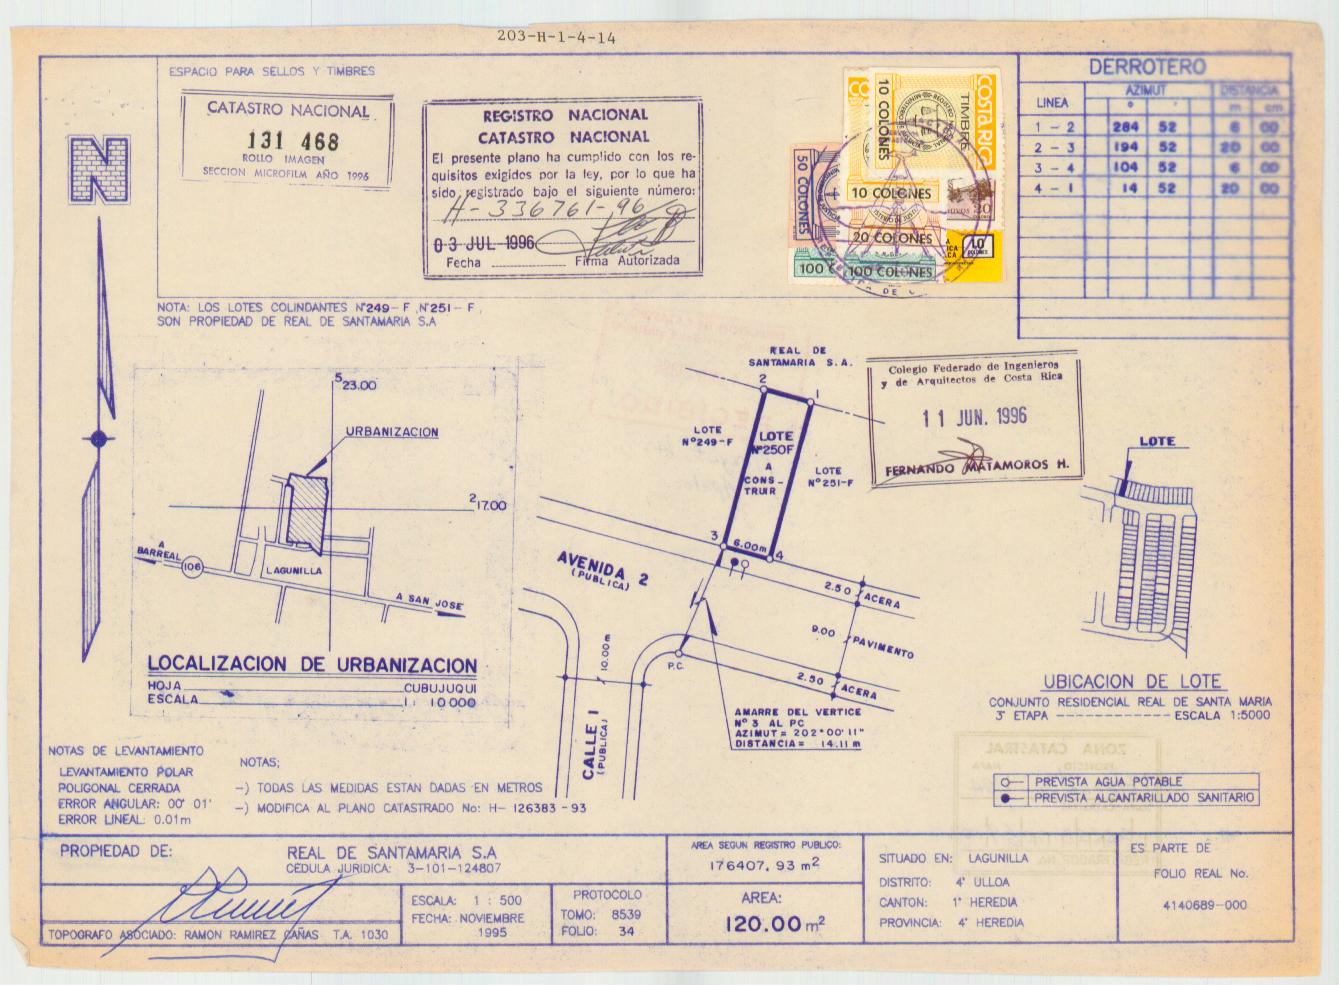 203-H-1-4-14
ESPACIO PARA SELLOS Y TIMBRES
CATASTRO NACIONAL
131 468
ROLLO IMAGEN
SECCION MICROFILM AÑO 1996
REGISTRO NACIONAL
CATASTRO NACIONAL
El presente plano ha cumplido con los re-
quisitos exigidos por la ley, por lo que ha
sido registrado bajo el siguiente número:
H-336761-96
03 JUL 1996
Fecha Firma Autorizada
COSTA RICA
TIMBRE
10 COLONES
10 COLONES
50 COLONES
20 COLONES
100 COLONES
DERROTERO
LINEA AZIMUT DISTANCIA
° ' m cm
1 - 2 284 52 6 00
2 - 3 194 52 20 00
3 - 4 104 52 6 00
4 - 1 14 52 20 00
N
NOTA: LOS LOTES COLINDANTES N°249-F ,N°251-F,
SON PROPIEDAD DE REAL DE SANTAMARIA S.A
523.00
URBANIZACION
217.00
A BARREAL
106
LAGUNILLA
A SAN JOSE
LOCALIZACION DE URBANIZACION
HOJA CUBUJUQUI
ESCALA 1: 10 000
REAL DE
SANTAMARIA S.A.
2
1
LOTE
N°249-F
LOTE
N°250F
A
CONS-
TRUIR
LOTE
N°251-F
3
6.00m
4
AVENIDA 2
(PUBLICA)
2.50 ACERA
9.00 PAVIMENTO
2.50 ACERA
10.00m
P.C.
CALLE 1
(PUBLICA)
AMARRE DEL VERTICE
N° 3 AL PC
AZIMUT= 202°00'11"
DISTANCIA= 14.11 m
Colegio Federado de Ingenieros
y de Arquitectos de Costa Rica
11 JUN. 1996
FERNANDO MATAMOROS H.
LOTE
UBICACION DE LOTE
CONJUNTO RESIDENCIAL REAL DE SANTA MARIA
3ª ETAPA ------------ ESCALA 1:5000
PREVISTA AGUA POTABLE
PREVISTA ALCANTARILLADO SANITARIO
NOTAS DE LEVANTAMIENTO
LEVANTAMIENTO POLAR
POLIGONAL CERRADA
ERROR ANGULAR: 00° 01'
ERROR LINEAL: 0.01m
NOTAS;
-) TODAS LAS MEDIDAS ESTAN DADAS EN METROS
-) MODIFICA AL PLANO CATASTRADO No: H- 126383-93
PROPIEDAD DE: REAL DE SANTAMARIA S.A
CEDULA JURIDICA: 3-101-124807
TOPOGRAFO ASOCIADO: RAMON RAMIREZ CAÑAS T.A. 1030
ESCALA: 1 : 500
FECHA: NOVIEMBRE
1995
PROTOCOLO
TOMO: 8539
FOLIO: 34
AREA SEGUN REGISTRO PUBLICO:
176407, 93 m2
AREA:
120.00 m2
SITUADO EN: LAGUNILLA
DISTRITO: 4° ULLOA
CANTON: 1° HEREDIA
PROVINCIA: 4° HEREDIA
ES PARTE DE
FOLIO REAL No.
4140689-000